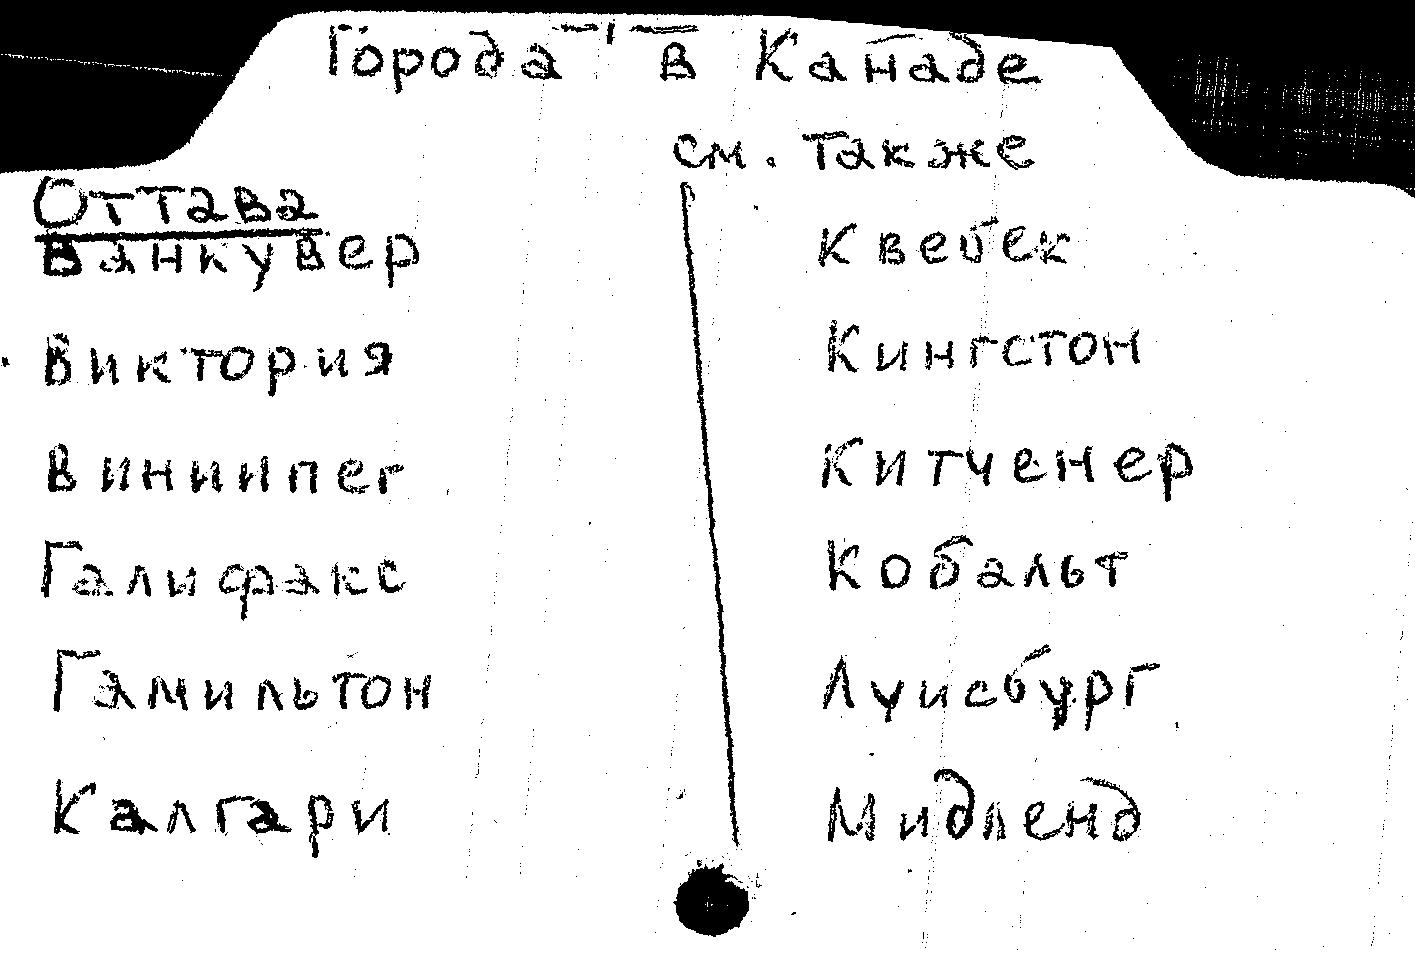 Города в Канаде
см. также
Оттава
Ванкувер
Виктория
Виннипег
Галифакс
Гамильтон
Калгари
Квебек
Кингстон
Китченер
Кобальт
Луисбург
Мидленд